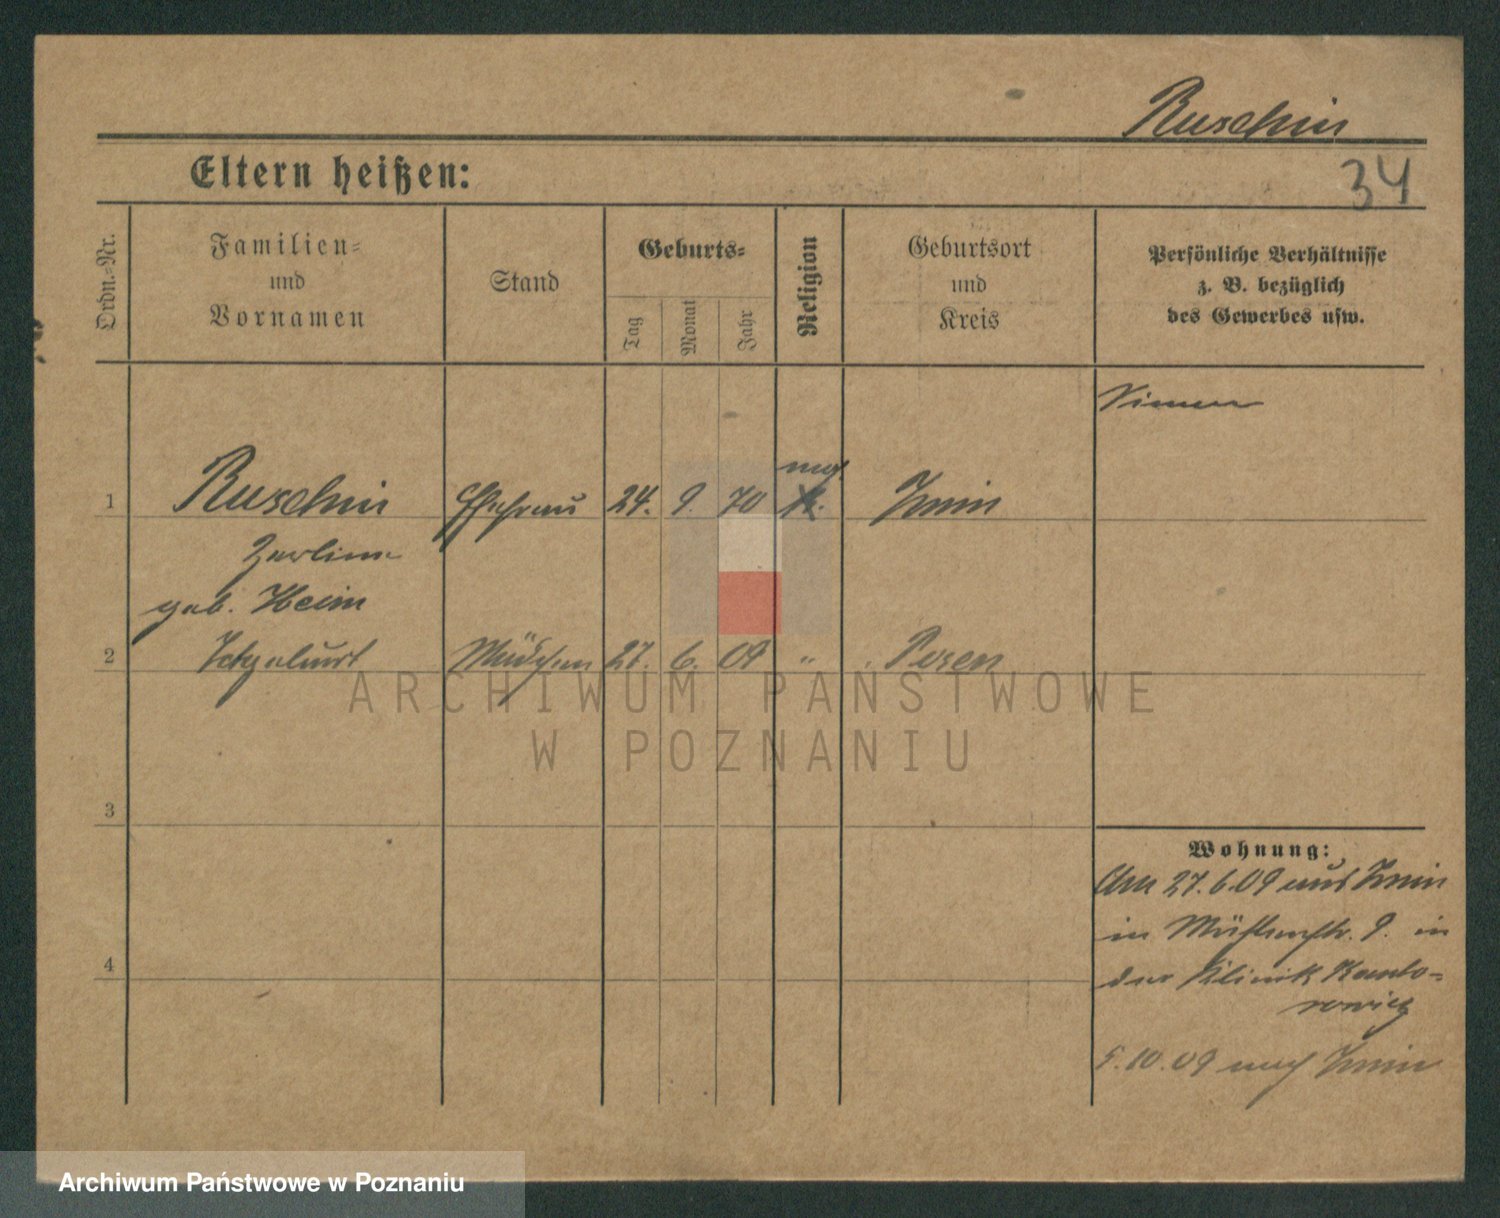 Ruschin
34
Eltern heißen:
Ordn.=Nr.
Familien=
und
Vornamen
Stand
Geburts=
Tag
Monat
Jahr
Religion
Geburtsort
und
Kreis
Persönliche Verhältnisse
z. B. bezüglich
des Gewerbes usw.
1
Ruschin
Ehefrau
24.
9.
70
Znin
Zerline
geb. Heim
2
Mädchen
27.
6.
09
"
Posen
3
4
Wohnung:
Am 27.6.09 aus Znin
in 9. in
der Klinik Kanto=
rowicz
5.10.09 nach Znin
ARCHIWUM PAŃSTWOWE
W POZNANIU
Archiwum Państwowe w Poznaniu